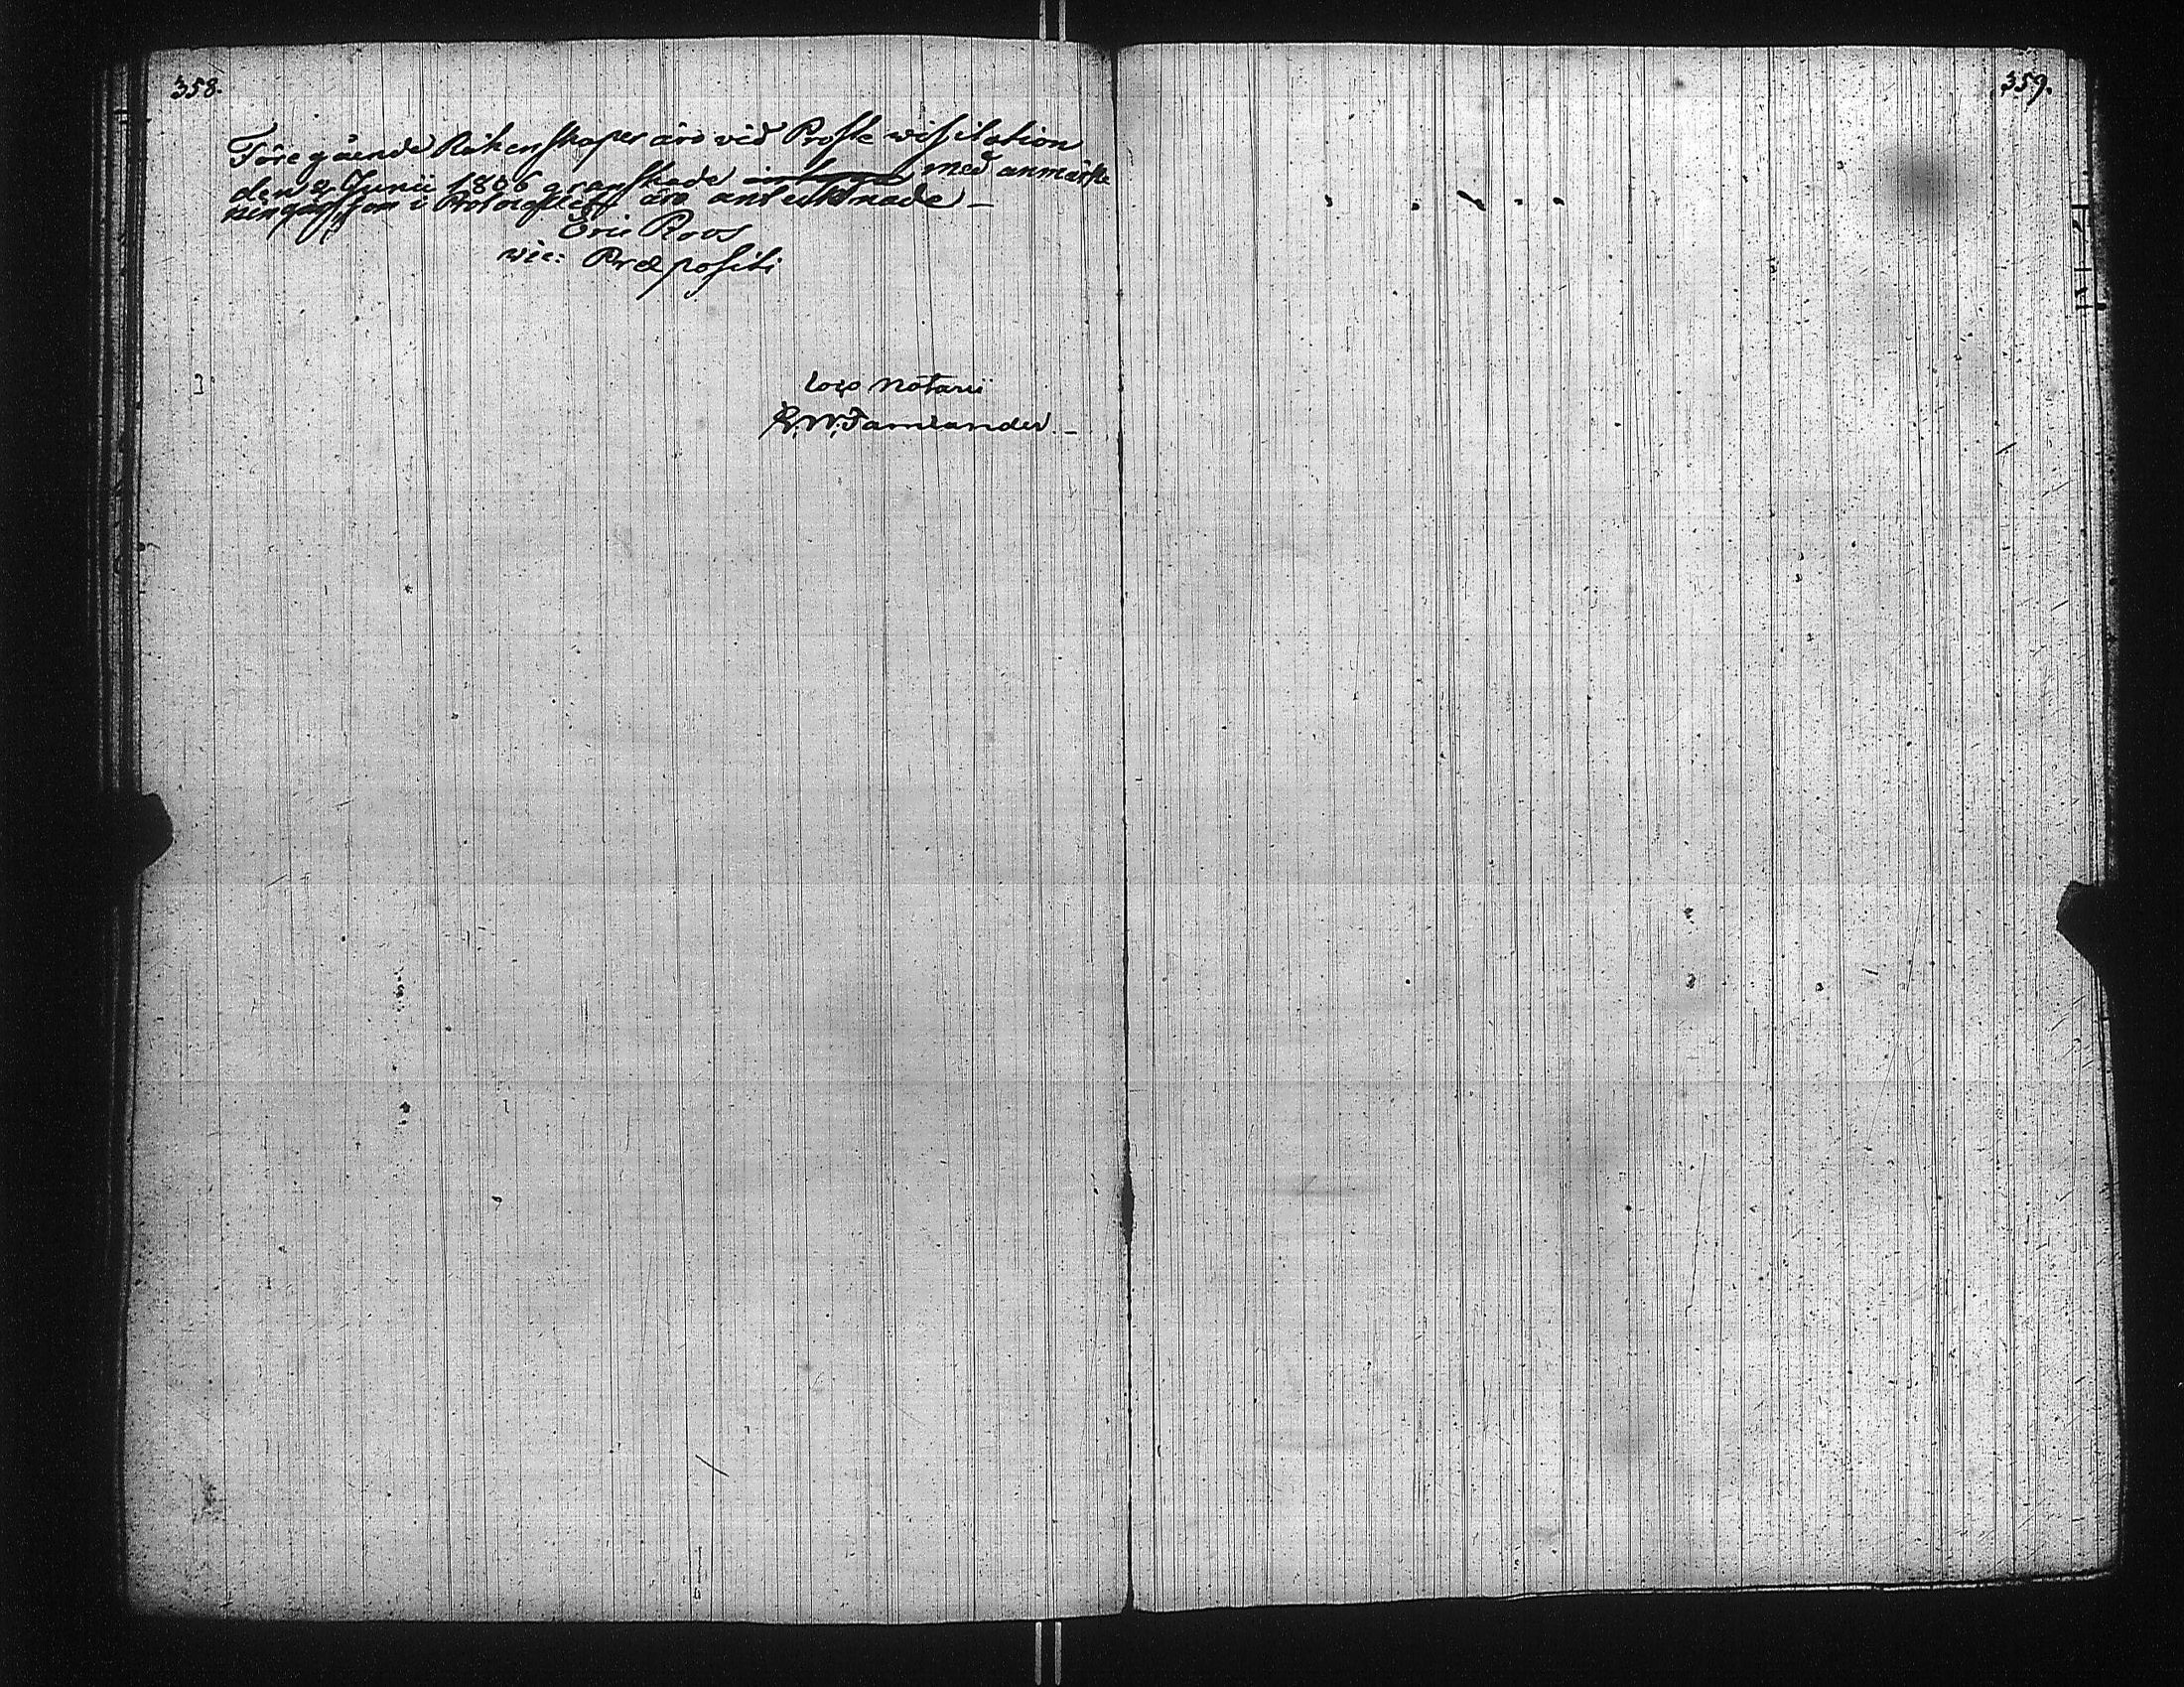 358.
Före gående Räkenskaper äro vid Proste wissitation
den 2 Junii 1806 granskade med anmärk
ningar som i Protocollet äro antecknade –
Eric Roos
vic: Præpositi
loco Notarii
359.